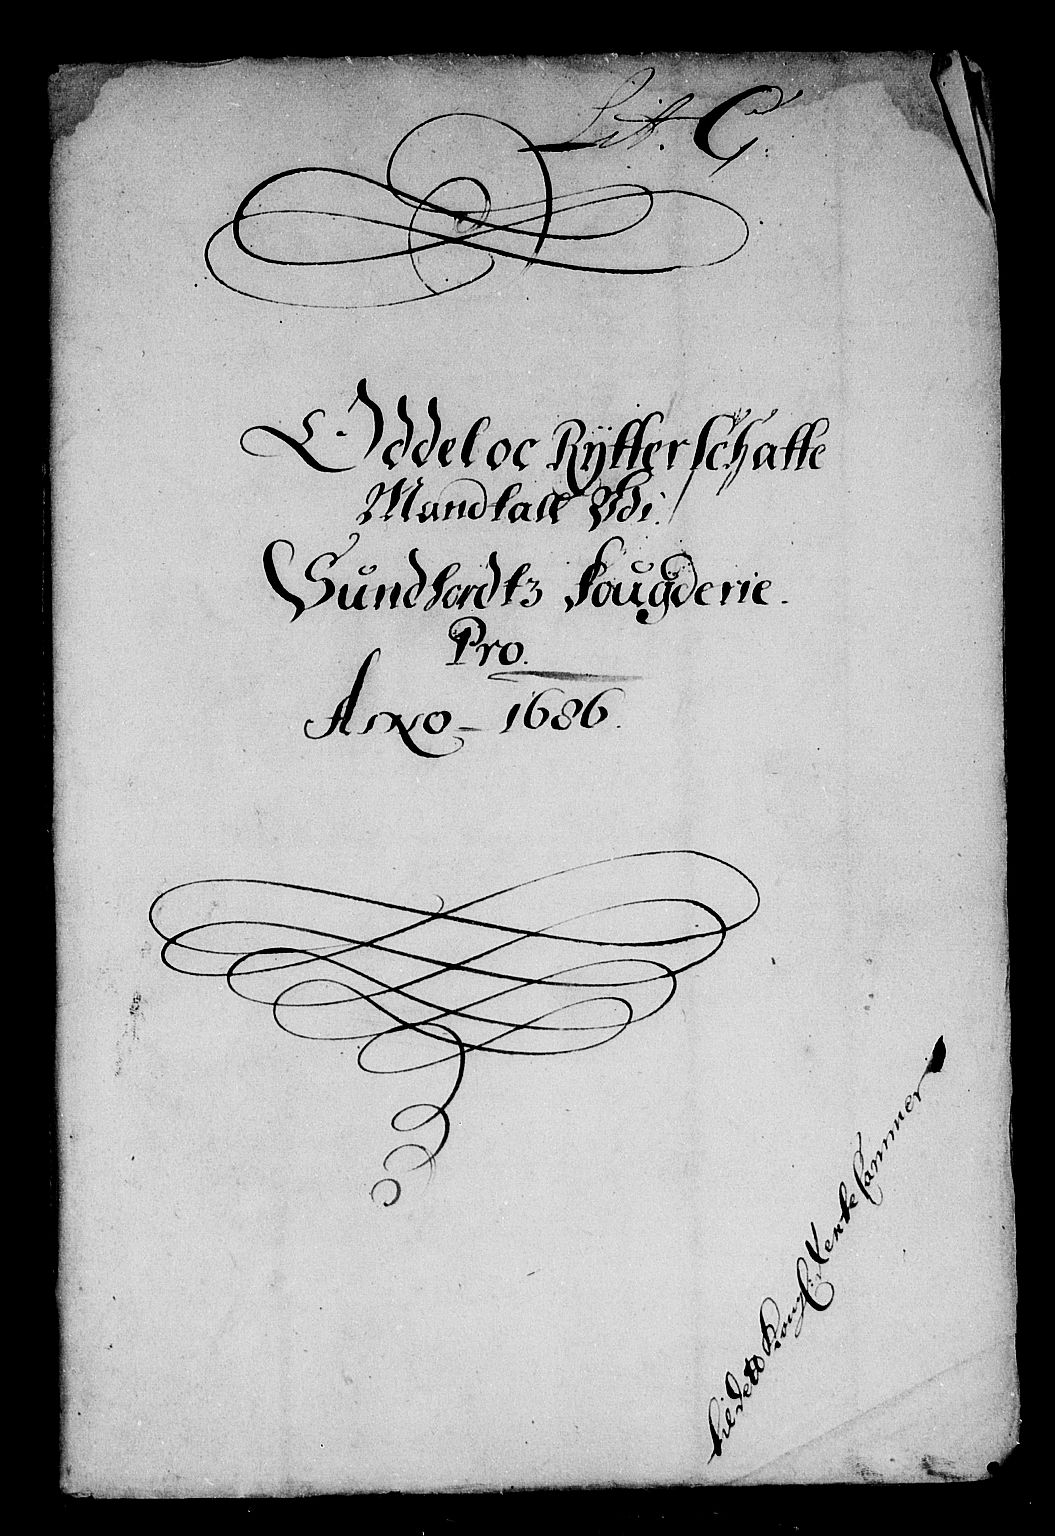 Lit. G.
Oddel oc Rÿtterschatte
Mandtall Vdi
Sundfiordtz fougderie.
Pro.
Anno 1686.
til dett Kongl: Rente Cammer